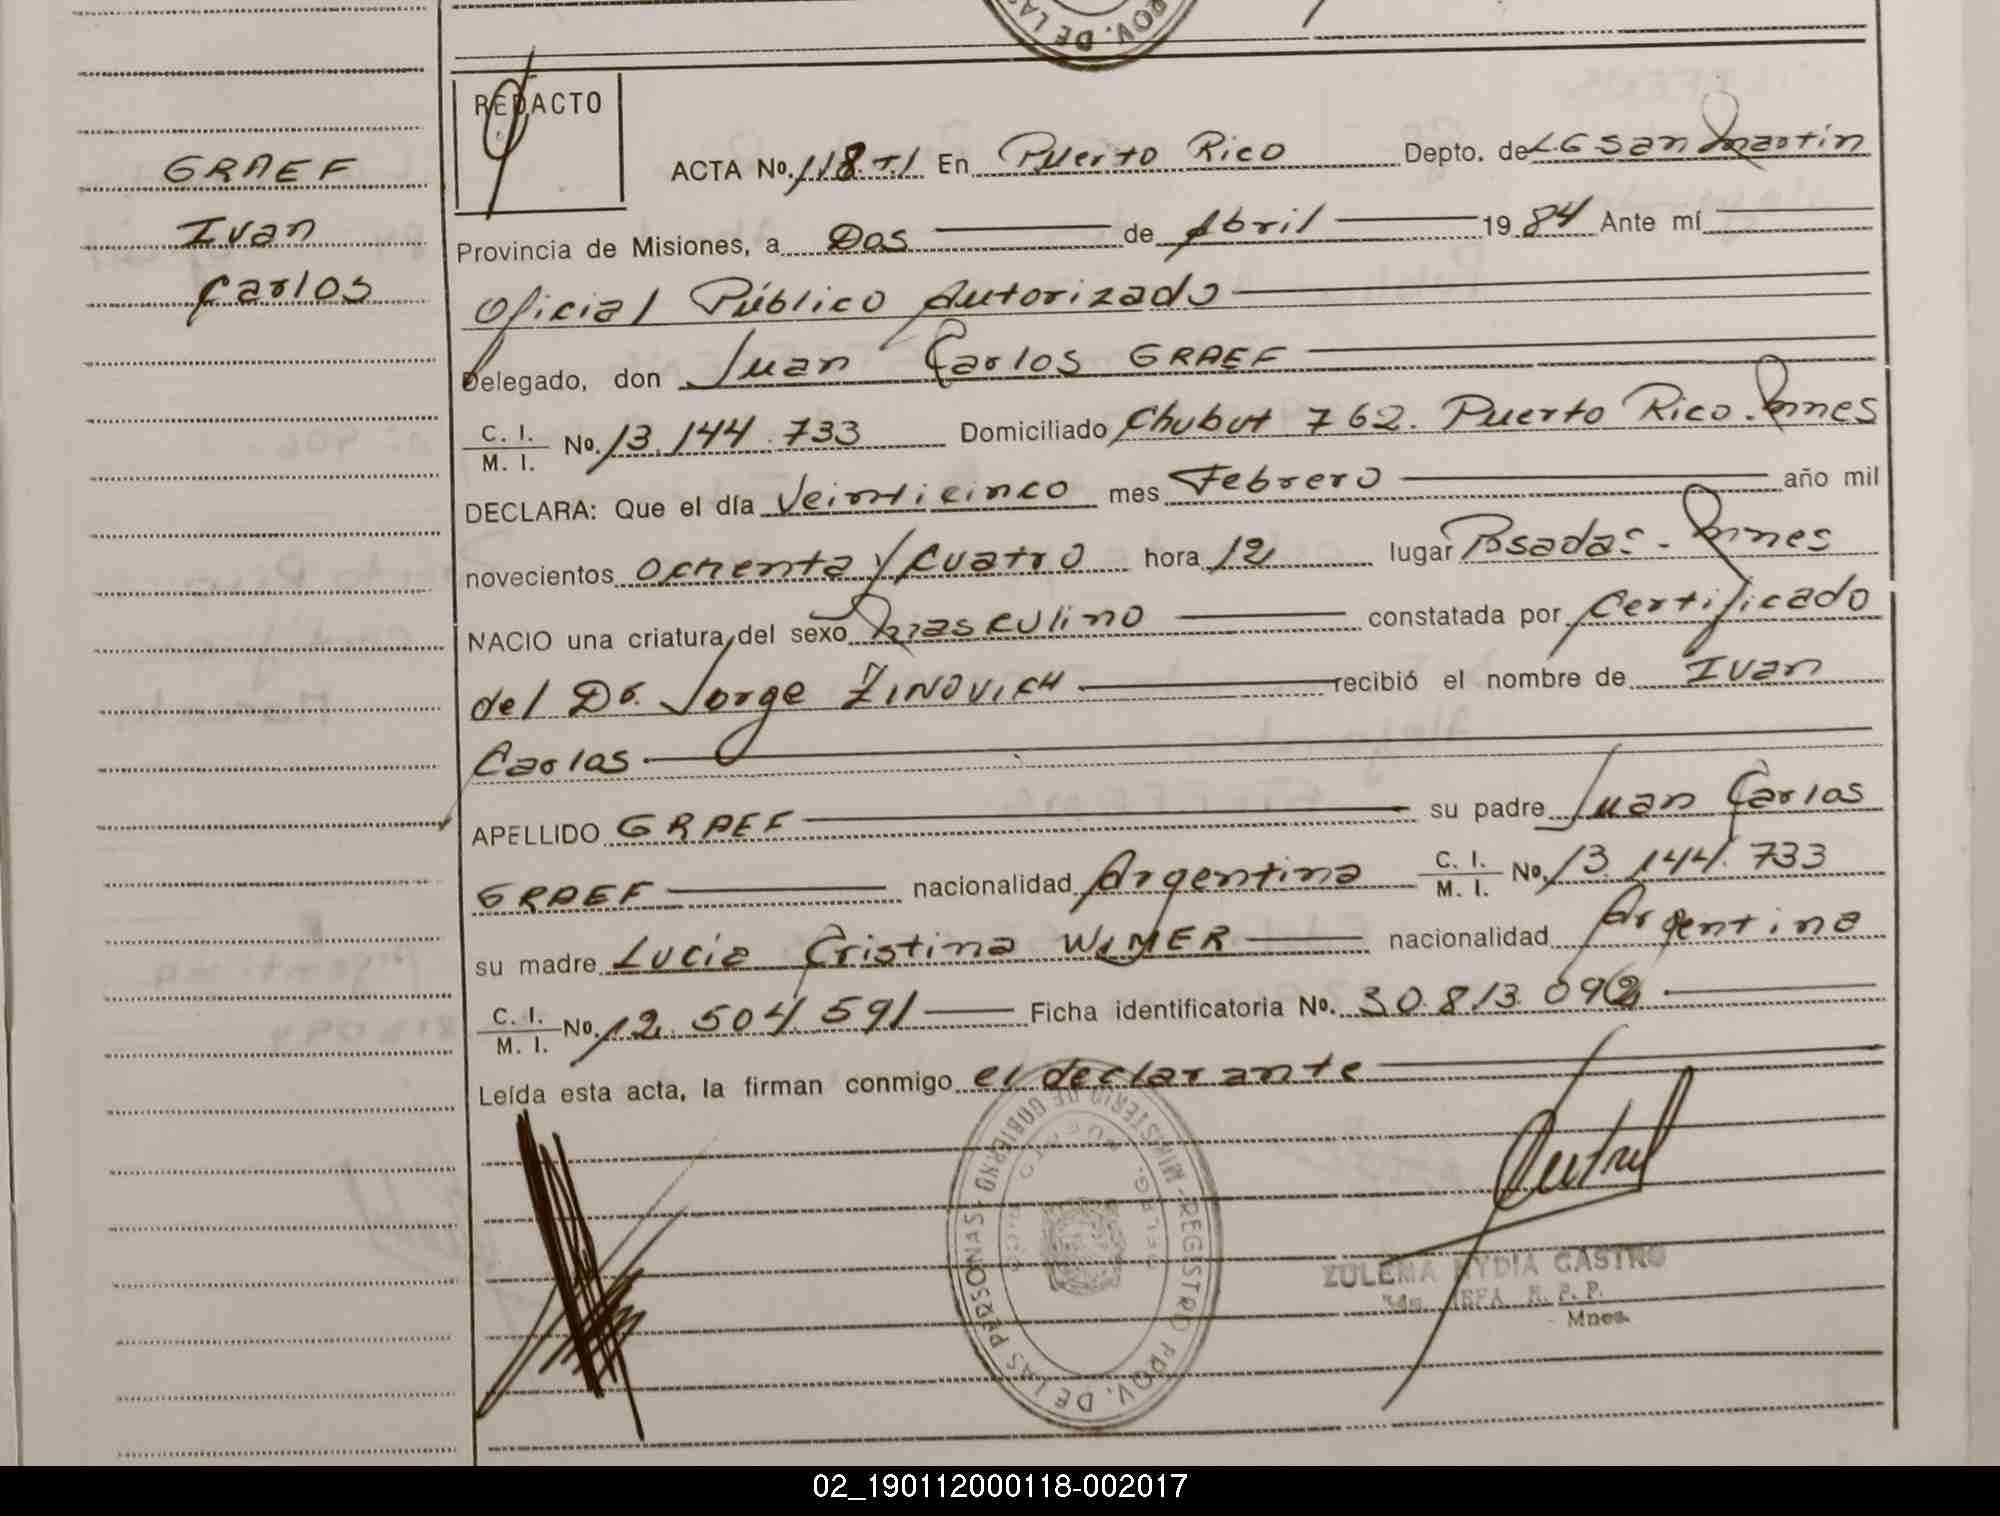 PROV. DE LAS
REDACTO
GRAEF
Ivan
Carlos
ACTA No. 118.T.I En Puerto Rico Depto. de L G San Martín
Provincia de Misiones, a Dos de Abril 19 84 Ante mí
Oficial Público Autorizado
Delegado, don Juan Carlos GRAEF
C. I.
M. I. No. 13.144.733 Domiciliado Chubut 762. Puerto Rico. Mnes
DECLARA: Que el día Veinticinco mes Febrero año mil
novecientos Ochenta y Cuatro hora 12 lugar Posadas - Mnes
NACIO una criatura del sexo Masculino constatada por Certificado
del Dr. Jorge ZINOVICH recibió el nombre de Ivan
Carlos
APELLIDO GRAEF su padre Juan Carlos
GRAEF nacionalidad Argentina C. I.
M. I. No. 13.144.733
su madre Lucia Cristina nacionalidad Argentina
C. I.
M. I. No. 12.504.591 Ficha identificatoria No. 30.813.092
Leída esta acta, la firman conmigo el declarante
MINISTERIO DE GOBIERNO - REGISTRO PROV. DE LAS PERSONAS
ZULEMA NYDIA CASTRO
JEFA R. P. P.
Mnes.
02_190112000118-002017